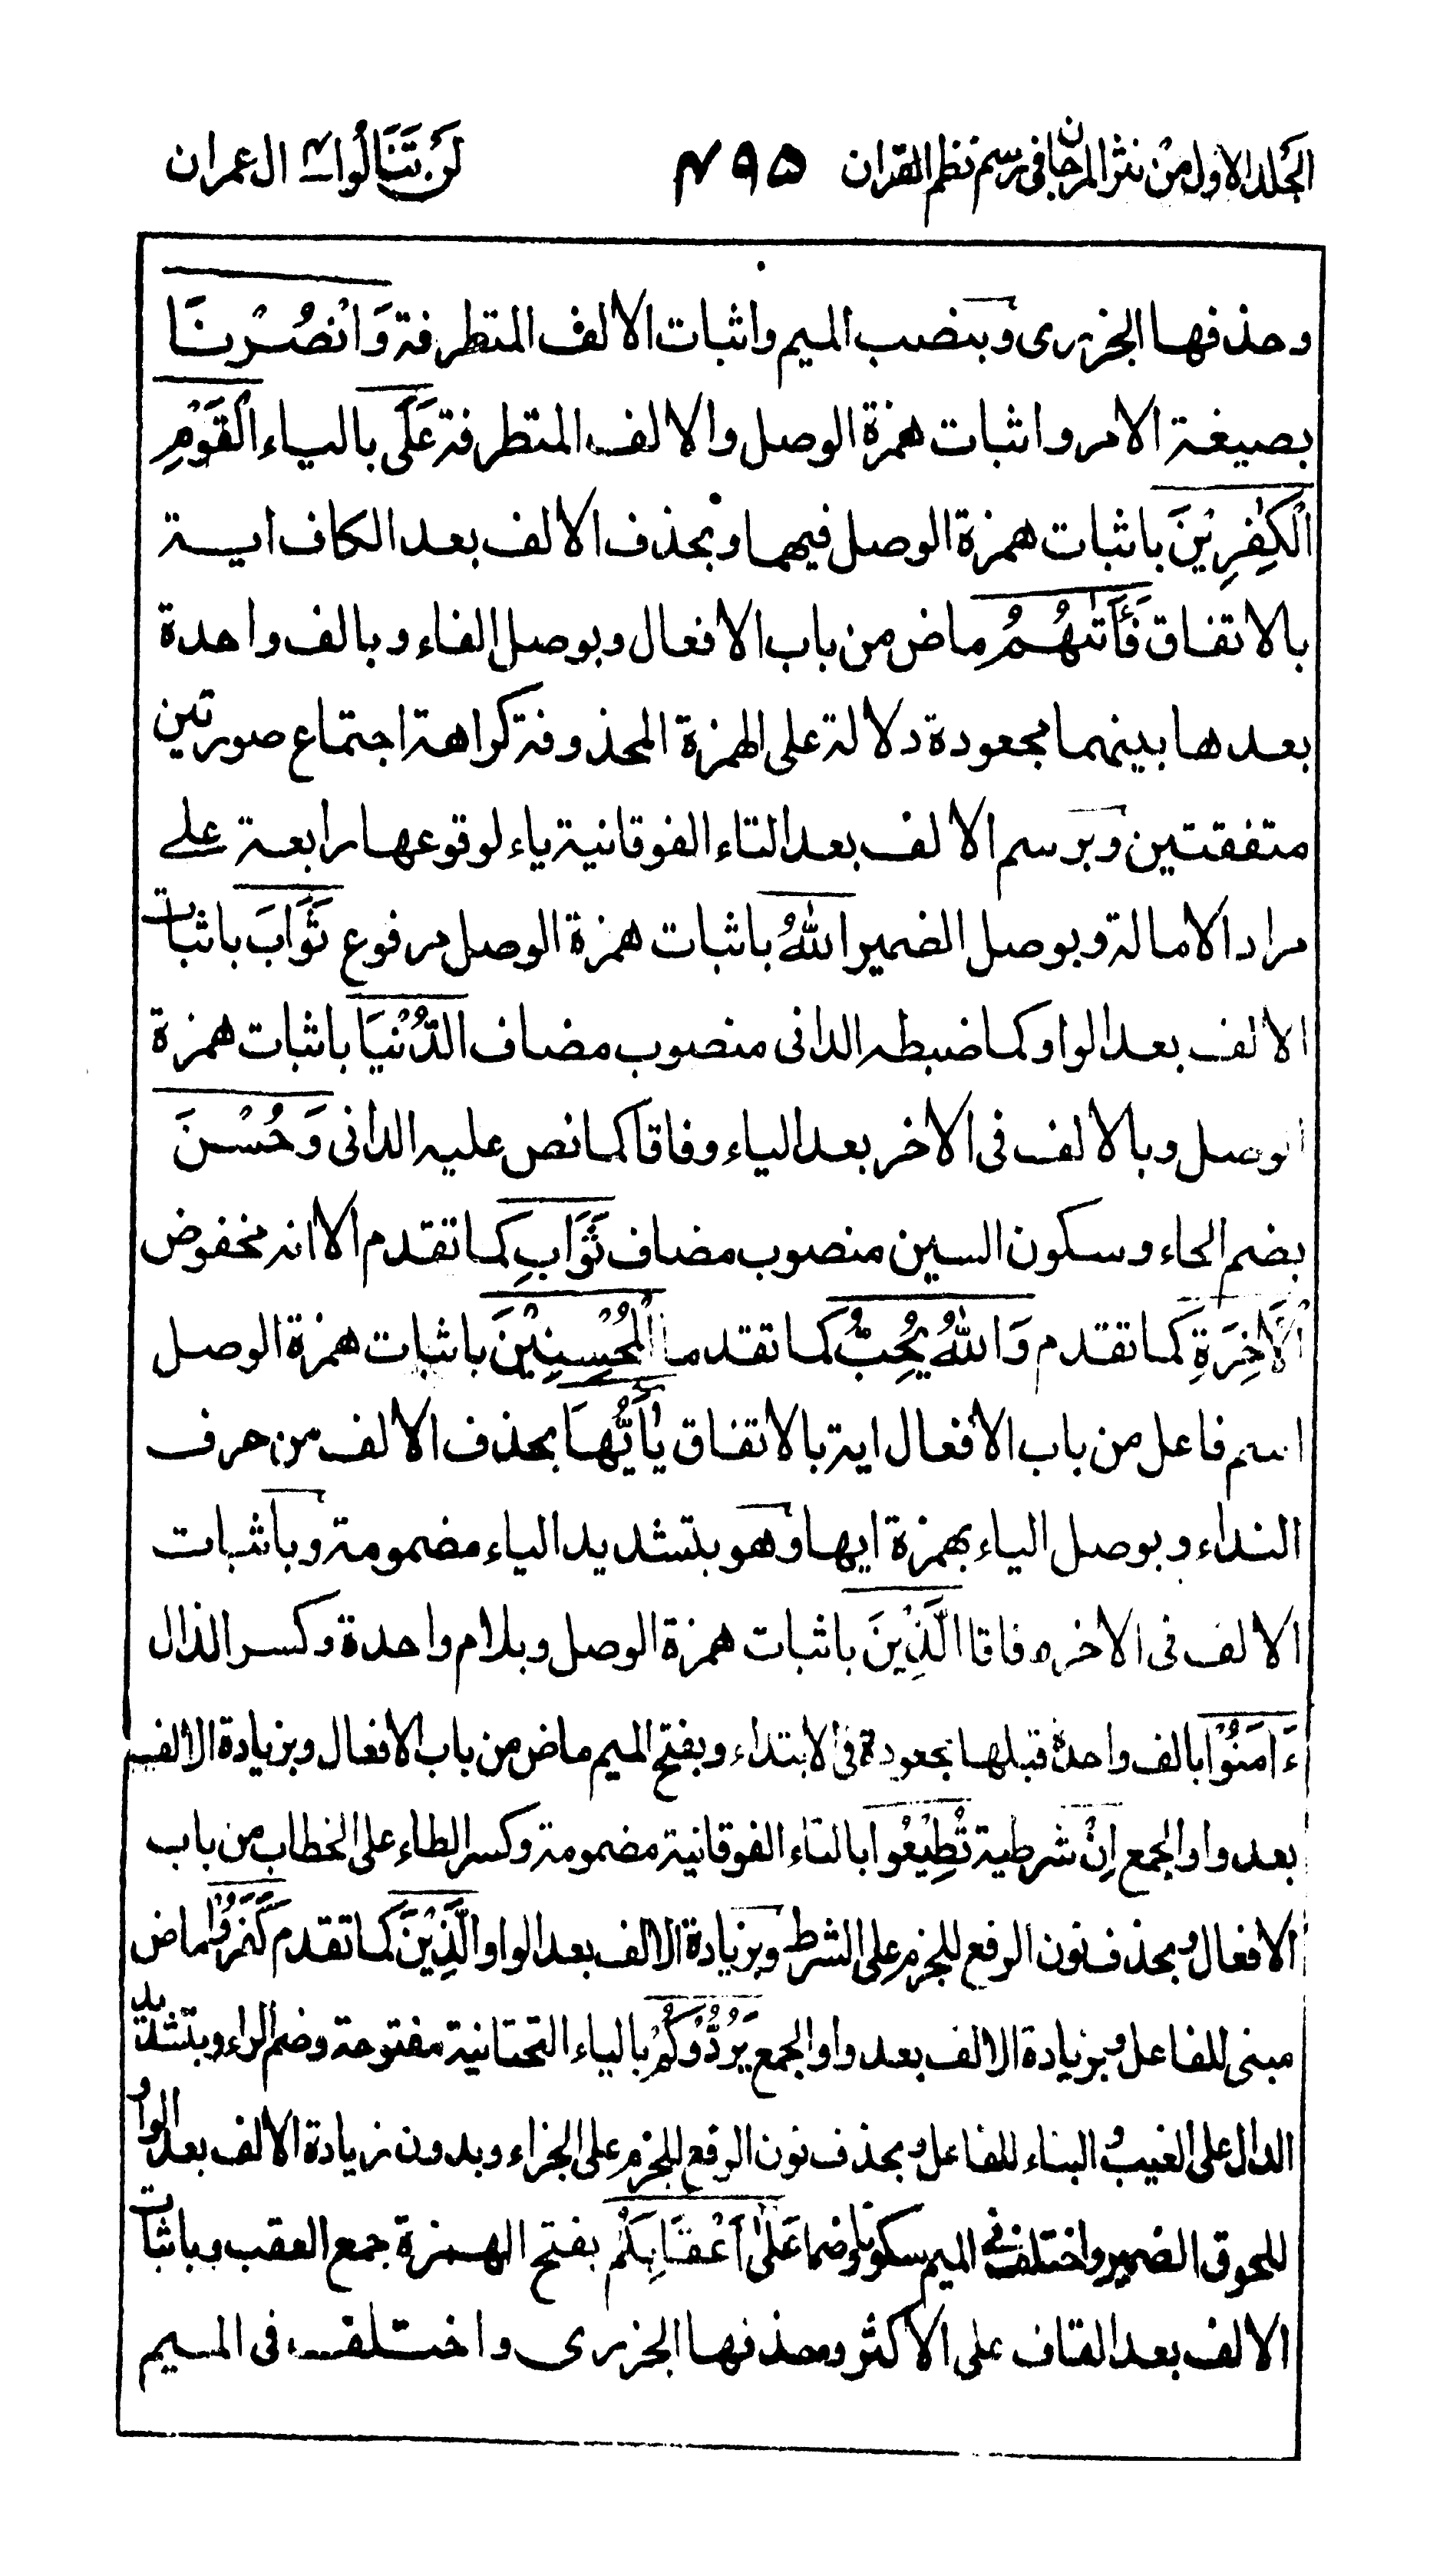 الجلد الاول من نثر المرجان فى رسم نظم القران ٤٩٥ لَنْ تَنَالُوا ٤ ال عمران
وحذفها الجزرى وبنصب الميم واثبات الالف المتطرفة وَانْصُرْنَا
بصيغة الامر واثبات همزة الوصل والالف المتطرفة عَلَى بالياء الْقَوْمِ
الْكٰفِرِيْنَ باثبات همزة الوصل فيهما وبحذف الالف بعد الكاف اية
بالاتفاق فَأَتٰىهُمُ ماض من باب الافعال وبوصل الفاء وبالف واحدة
بعدها بينهما مجعودة دلالة على الهمزة المحذوفة كراهة اجتماع صورتين
متفقتين وبرسم الالف بعد التاء الفوقانية ياء لوقوعها رابعة على
مراد الامالة وبوصل الضمير اللهُ باثبات همزة الوصل مرفوع ثَوَابَ باثبات
الالف بعد الواو كما ضبطه الدانى منصوب مضاف الدُّنْيَا باثبات همزة
الوصل وبالالف فى الاخر بعد الياء وفاقا كما نص عليه الدانى وَحُسْنَ
بضم الحاء وسكون السين منصوب مضاف ثَوَابِ كما تقدم الا انه مخفوض
الْاٰخِرَةِ كما تقدم وَاللهُ يُحِبُّ كما تقدما الْمُحْسِنِيْنَ باثبات همزة الوصل
اسم فاعل من باب الافعال اية بالاتفاق يٰأَيُّهَا بحذف الالف من حرف
النداء وبوصل الياء بهمزة ايها وهو بتشديد الياء مضمومة وباثبات
الالف فى الاخر وفاقا الَّذِيْنَ باثبات همزة الوصل وبلام واحدة وكسر الذال
ءَامَنُوْا بالف واحدة قبلها مجعودة فى الابتداء وبفتح الميم ماض من باب الافعال وبزيادة الالف
بعد واو الجمع اِنْ شرطية تُطِيْعُوا بالتاء الفوقانية مضمومة وكسر الطاء على الخطاب من باب
الافعال وبحذف نون الرفع للجزم على الشرط وبزيادة الالف بعد الواو الَّذِيْنَ كما تقدم كَفَرُوْا ماض
مبنى للفاعل وبزيادة الالف بعد واو الجمع يَرُدُّوْكُمْ بالياء التحتانية مفتوحة وضم الراء وبتشديد
الدال على الغيب والبناء للفاعل وبحذف نون الرفع للجزم على الجزاء وبدون زيادة الالف بعد الواو
للحوق الضمير واختلف فى الميم سكونا وضما عَلٰى اَعْقَابِكُمْ بفتح الهمزة جمع العقب وباثبات
الالف بعد القاف على الاكثر وحذفها الجزرى واختلف فى الميم